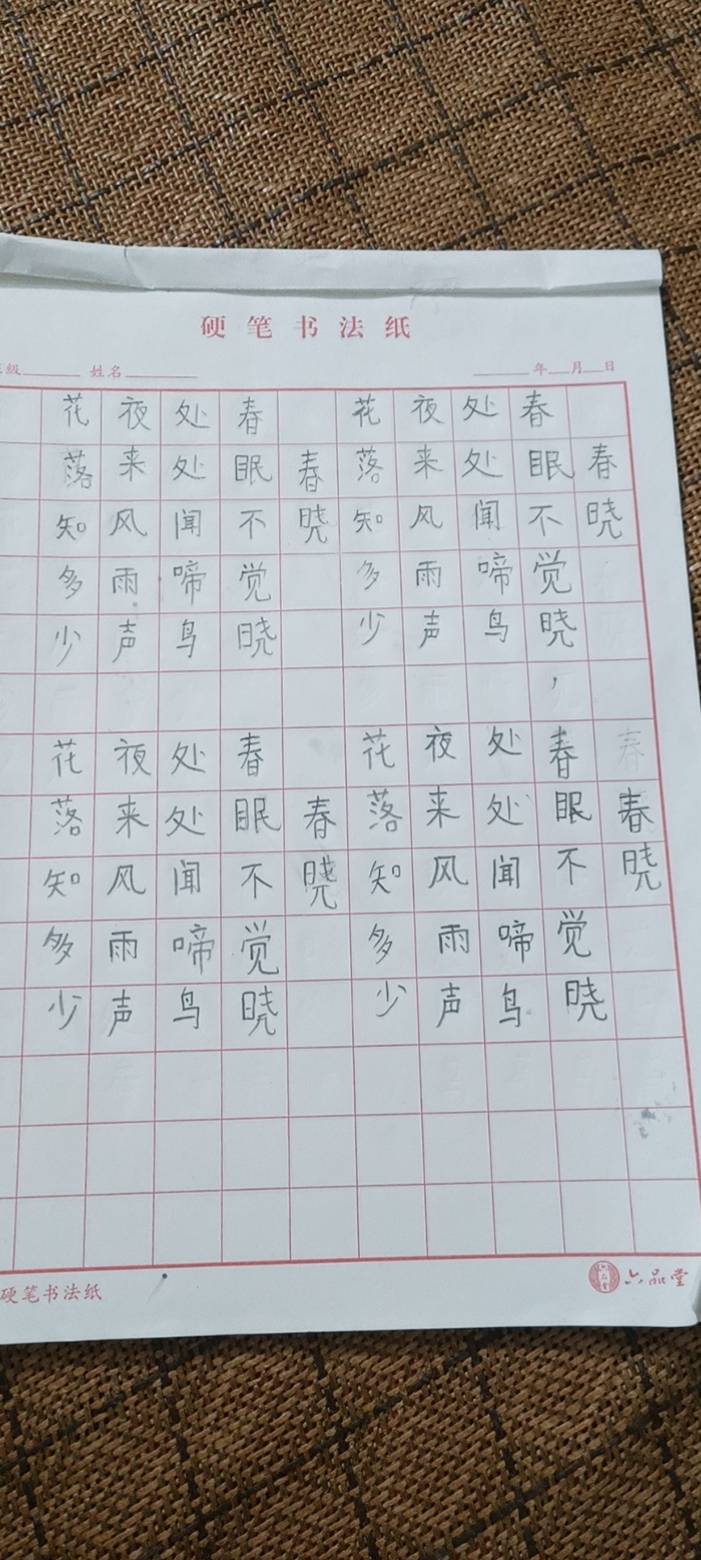 硬笔书法纸
级 姓名 年 月 日
春晓
春眠不觉晓，
处处闻啼鸟
夜来风雨声
花落知多少
春晓
春眠不觉晓
处处闻啼鸟
夜来风雨声
花落知多少
春春晓
春眠不觉晓
处处闻啼鸟
夜来风雨声
花落知多少
春晓
春眠不觉晓
处处闻啼鸟
夜来风雨声
花落知多少
硬笔书法纸
六品堂